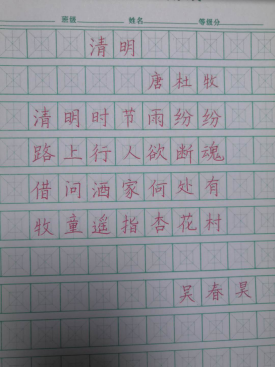 班级 姓名 等级分
清明
唐杜牧
清明时节雨纷纷
路上行人欲断魂
借问酒家何处有
牧童遥指杏花村
吴春昊